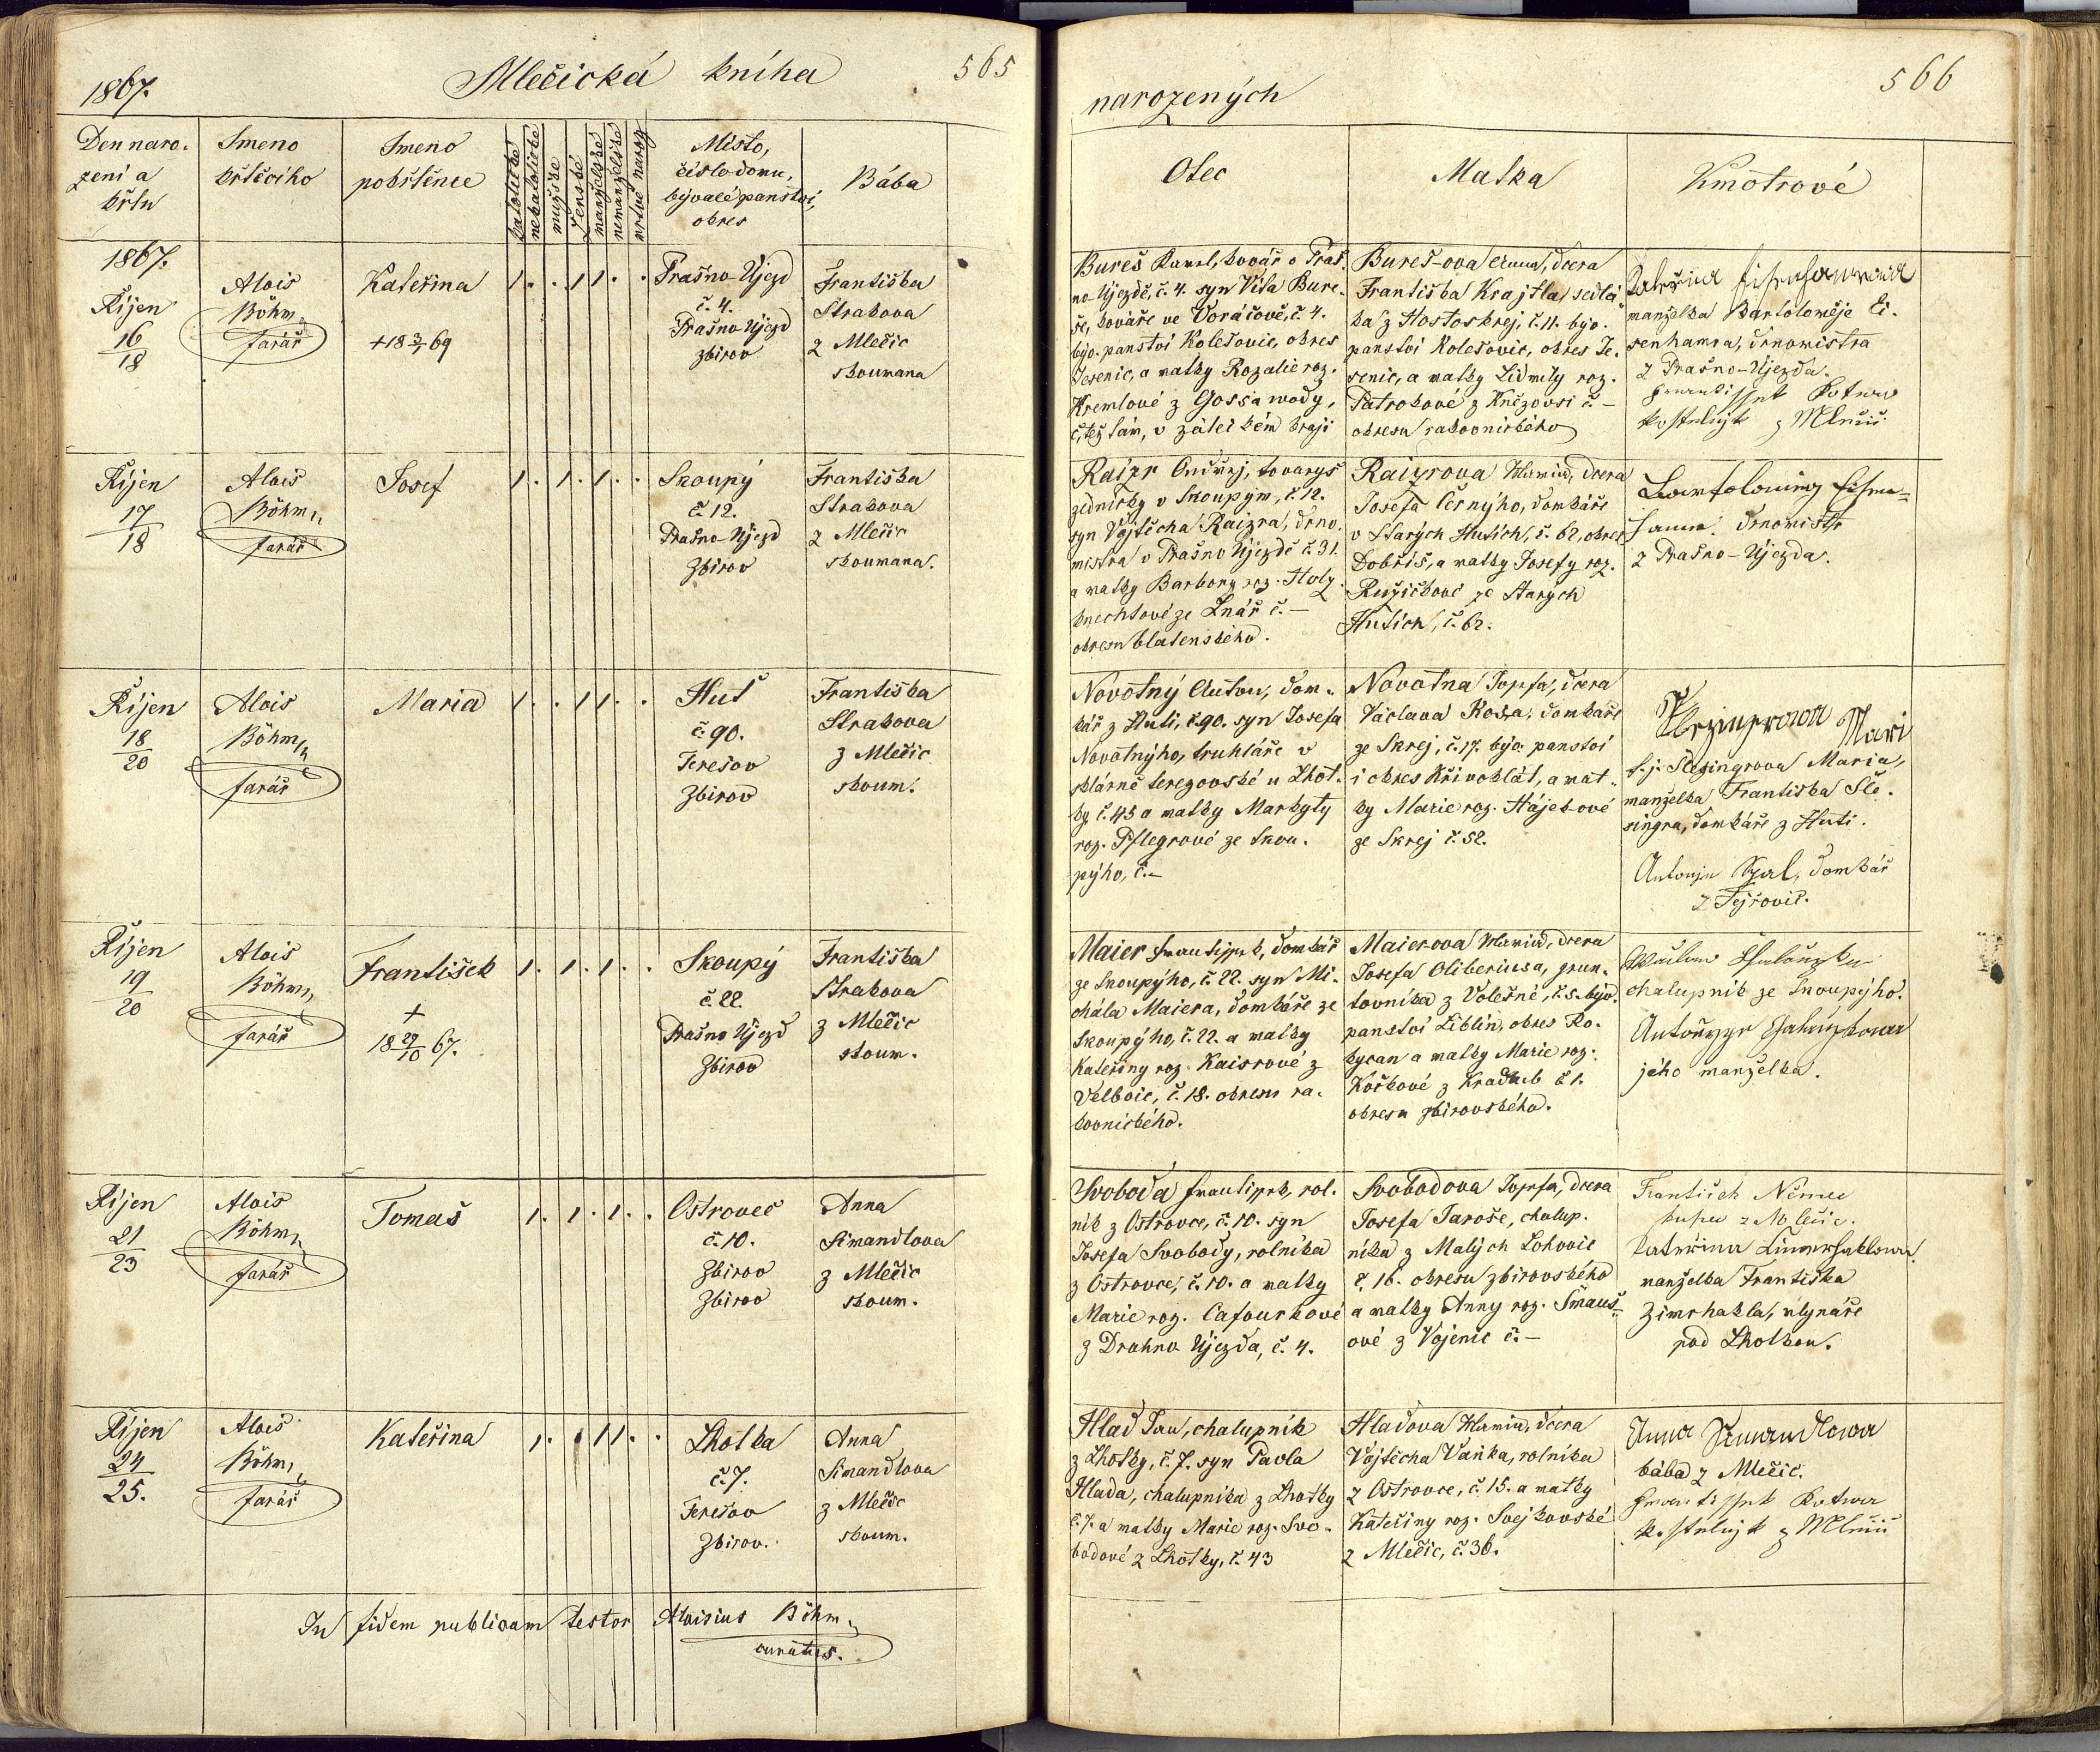 1867.
Mlečická kniha
565
Den naro-
zení a
křtu
Jmeno
křtícího
Jmeno
pokřtěnce
katolické
nekatolické
mužské
ženské
manželské
nemanželské
mrtvě naroz
Místo,
číslo domu,
bývalé panství,
okres
Bába
1867.
Říjen
16
18
Alois
Böhm
farář
Kateřina
+ 18 3/1 69
1 . . 1 1 . .
Prašno-Újezd
č. 4.
Prašno-Újezd
Zbirov
Františka
Strakova
z Mlečic
zkoumana
Říjen
17
18
Alois
Böhm
farář
Josef
1 . 1 . 1 . .
Skoupý
č 12.
Prašno-Újezd
Zbirov
Františka
Strakova
z Mlečic
zkoumana.
Říjen
18
20
Alois
Böhm
farář
Maria
1 . . 1 1 . .
Huť
č. 90.
Terešov
Zbirov
Františka
Strakova
z Mlečic
zkoum.
Říjen
19
20
Alois
Böhm
farář
František
+
18 29/10 67.
1 . 1 . 1 . .
Skoupý
č 22.
Prašno Újezd
Zbirov
Františka
Strakova
z Mlečic
zkoum.
Říjen
21
23
Alois
Böhm
farář
Tomaš
1 . 1 . 1 . .
Ostrovec
č. 10.
Zbirov
Zbirov
Anna
Simandlova
z Mlečic
zkoum.
Říjen
24
25.
Alois
Böhm
farář
Kateřina
1 . . 1 1 . .
Lhotka
č. 7.
Terešov
Zbirov.
Anna
Simandlova
z Mlečic
zkoum.
In fidem publicam testor Aloisius Böhm
curatus.
narozených
566
Otec
Matka
Kmotrové
Bureš Karel, kovář v Praš-
no-Újezdě, č. 4. syn Víta Bure-
še, kováře ve Voračově, č. 4.
býv. panství Kolešovic, okres
Jesenic, a matky Rozalie roz.
Kremlové z Gossawody,
č, též tam, v žateckém kraji
Bureš-ova Anna, dcera
Františka Krajtla, sedlá-
ka z Hostokrej, č. 11. býv.
panství Kolešovic, okres Je-
senic, a matky Lidmily roz.
Patrokové z Kněžovsi č. –
okresu rakovnického
manželka Bartoloměje Ei-
senhamra, drnomistra
z Prašno-Újezda.
Frantissek Kotwa
kostelnjk z Mlečic
Raizr Ondřej, tovaryš
zednický v Skoupým, č 12.
syn Vojtěcha Raizra, drno-
mistra v Prašno Újezdě č. 31.
a matky Barbory roz. Holz-
knechtové ze Lnář č. –
okresu blatenského.
Raizrova Maria, dcera
Josefa Černýho, domkáře
v Starých Hutích, č. 62, okres
Dobříš, a matky Josefy roz.
Ružičkové ze Starých
Hutích, č. 62.
Bartolomiej Eisen-
hamr drnomistr
z Prašno-Újezda.
Novotný Anton, dom-
kář z Huti, č. 90. syn Josefa
Novotnýho, truhláře v
sklárně terezovské u Lhot-
ky, č. 45 a matky Markyty
roz. Pflegrové ze Skou-
pýho, č. –
Novotna Josefa, dcera
Václava Kosa, domkáře
ze Skrej, č. 17. býv. panství
i okres Křivoklát, a mat-
ky Marie roz. Hájek-ové
ze Skrej č. 52.
Mari
t. j. Slezingrova Maria,
manželka Františka Šle-
singra, domkáře z Huti.
Antonjn Kral, domkář
z Tejřovic.
Maier Frantissek, domkář
ze Skoupýho, č. 22. syn Mi-
chála Maiera, domkáře ze
Skoupýho, č. 22. a matky
Kateřiny roz. Kaisrové z
Velbvic, č. 18. okresu ra-
kovnického.
Maierova Maria, dcera
Josefa Oliberiusa, grun-
tovníka z Volešné, č. 5. býv.
panství Liblín, okres Ro-
kycan a matky Marie roz.
Kočkové z Kradrub č 1.
okresu zbirovského.
chalupník ze Skoupýho.
jeho manželka.
Svoboda Frantissek, rol-
ník z Ostrovce, č. 10. syn
Josefa Svobody, rolníka
z Ostrovce, č. 10. a matky
Marie roz. Cafourkové
z Drahno Újezda, č. 4.
Svobodova Josefa, dcera
Josefa Jaroše, chalup-
níka z Malých Lohovic
č. 16. okresu zbirovského
a matky Anny roz. Šmauš-
ové z Vojenic č. –
František Němec
kupec z Mlečic.
Kateřina Zimrhaklowa
manželka Františka
Zimrhakla, mlynáře
pod Lhotkou.
Hlad Jan, chalupník
z Lhotky, č. 7. syn Pavla
Hlada, chalupníka z Lhotky
č. 7. a matky Marie roz. Svo-
bodové z Lhotky, č. 43
Hladova Maria, dcera
Vojtěcha Vaňka, rolníka
z Ostrovce, č. 15. a matky
Kateřiny roz. Svejkovské
z Mlečic, č. 36.
Anna Simandlowa
bába z Mlečic.
Frantissek Kotwa
kostelnjk z Mlečic